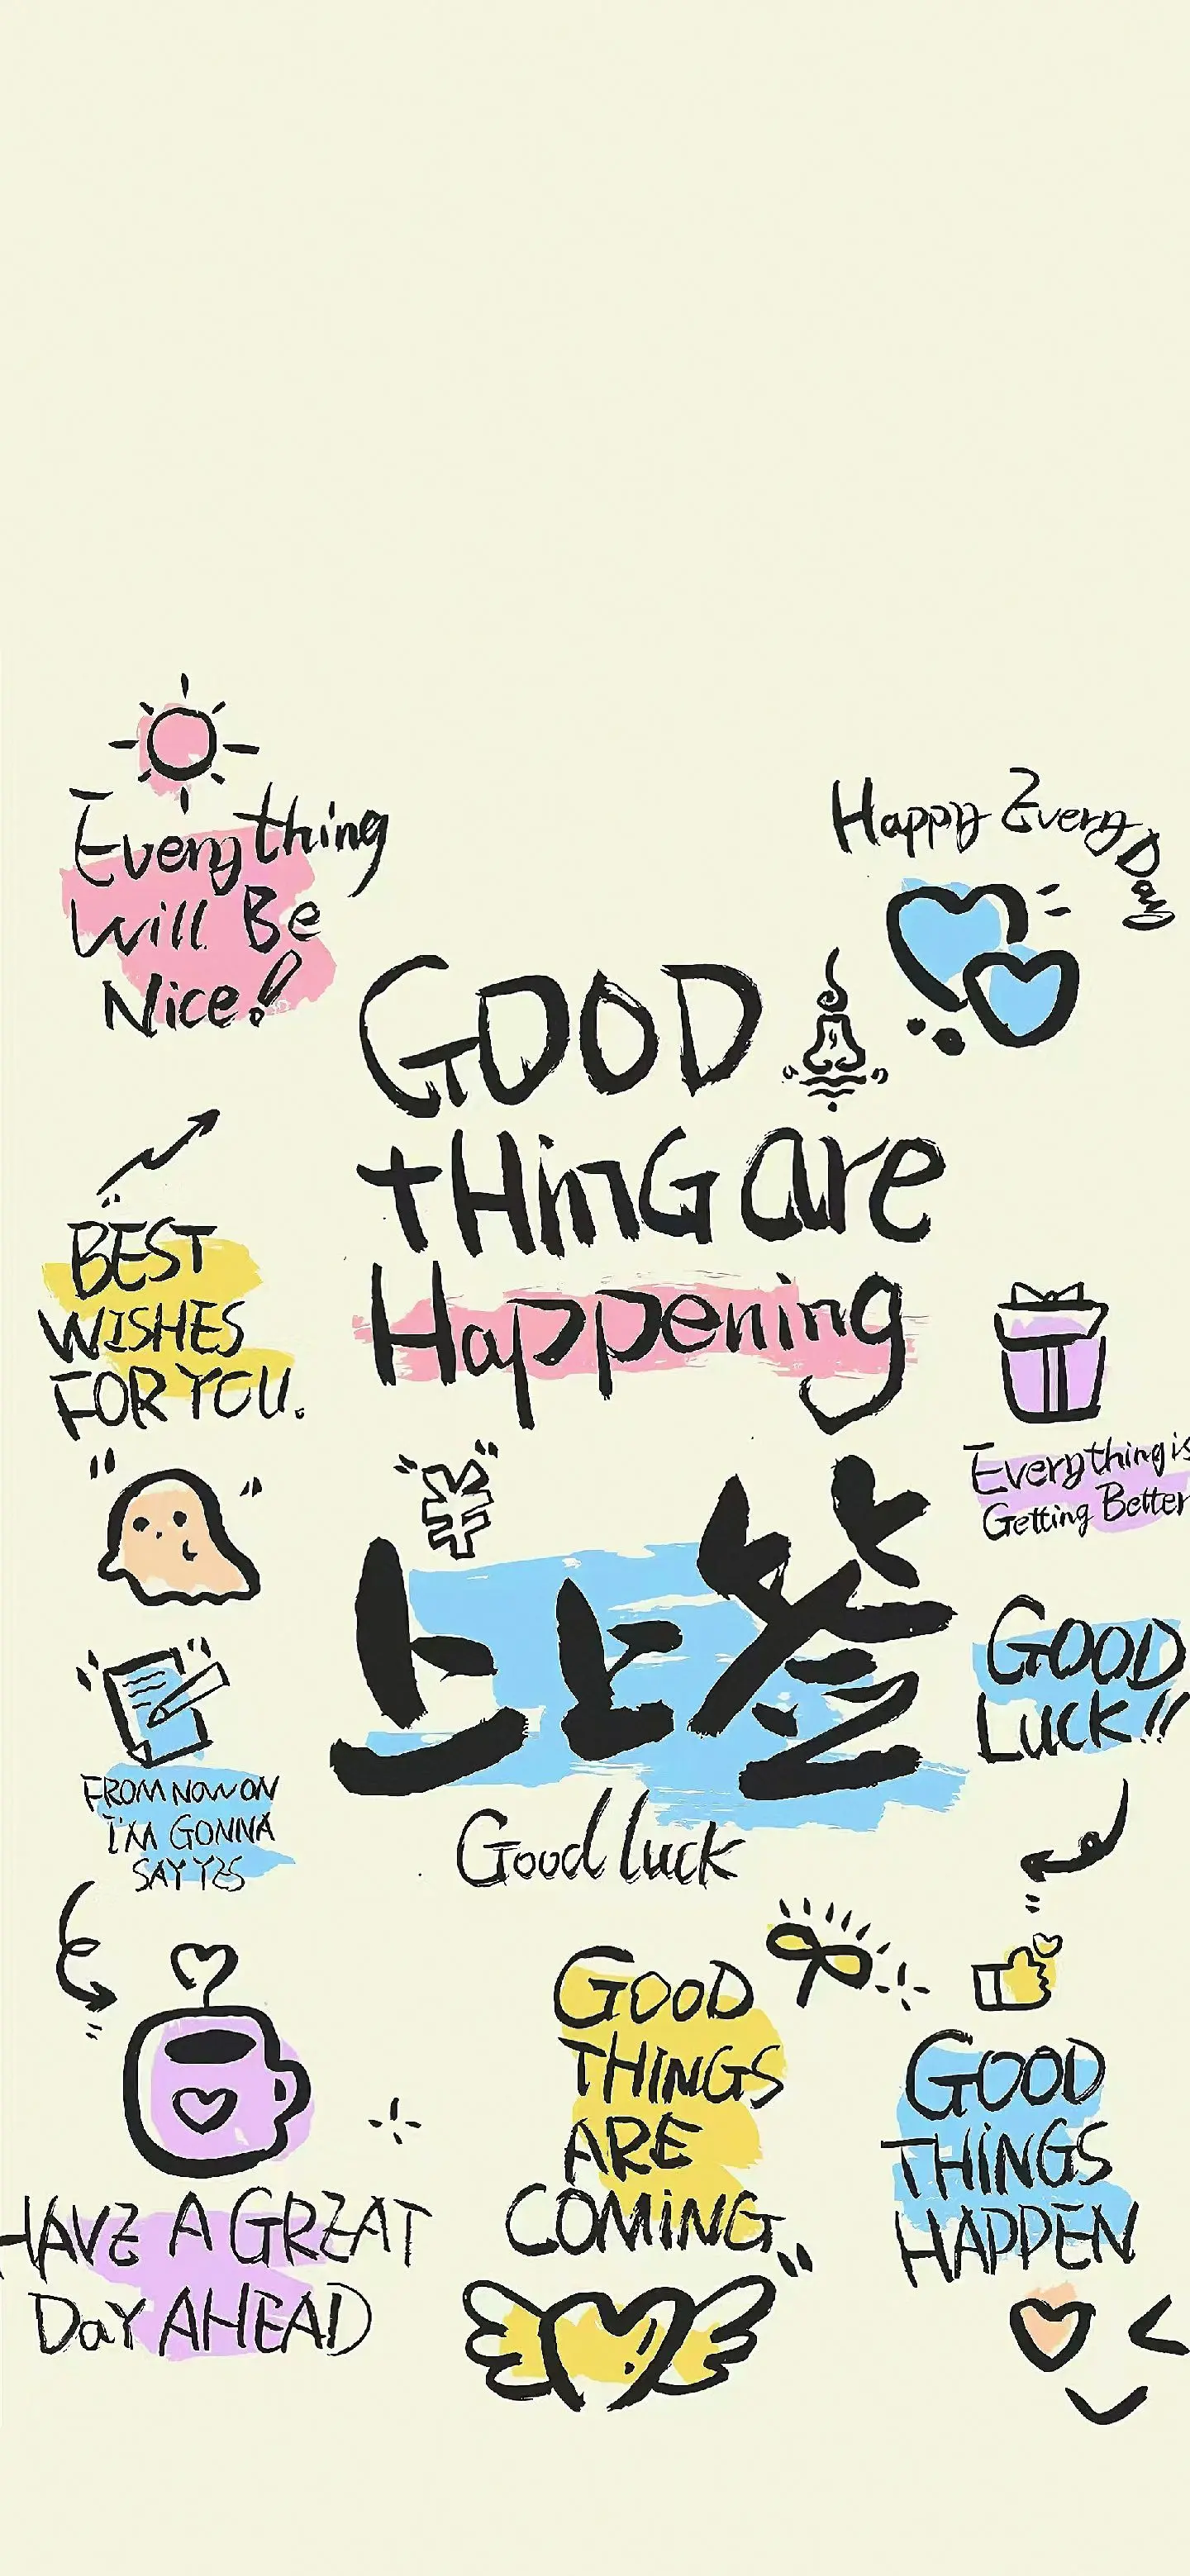 Everything
Will Be
Nice!
Happy Every Day
GOOD
tHinG are
Happening
BEST
WISHES
FOR YOU.
¥
上上签
Good luck
Everything is
Getting Better
GOOD
LUCK!!
FROM NOW ON
I'M GONNA
SAY YES
HAVE A GREAT
DaY AHEAD
GOOD
THINGS
ARE
COMING
GOOD
THINGS
HAPPEN